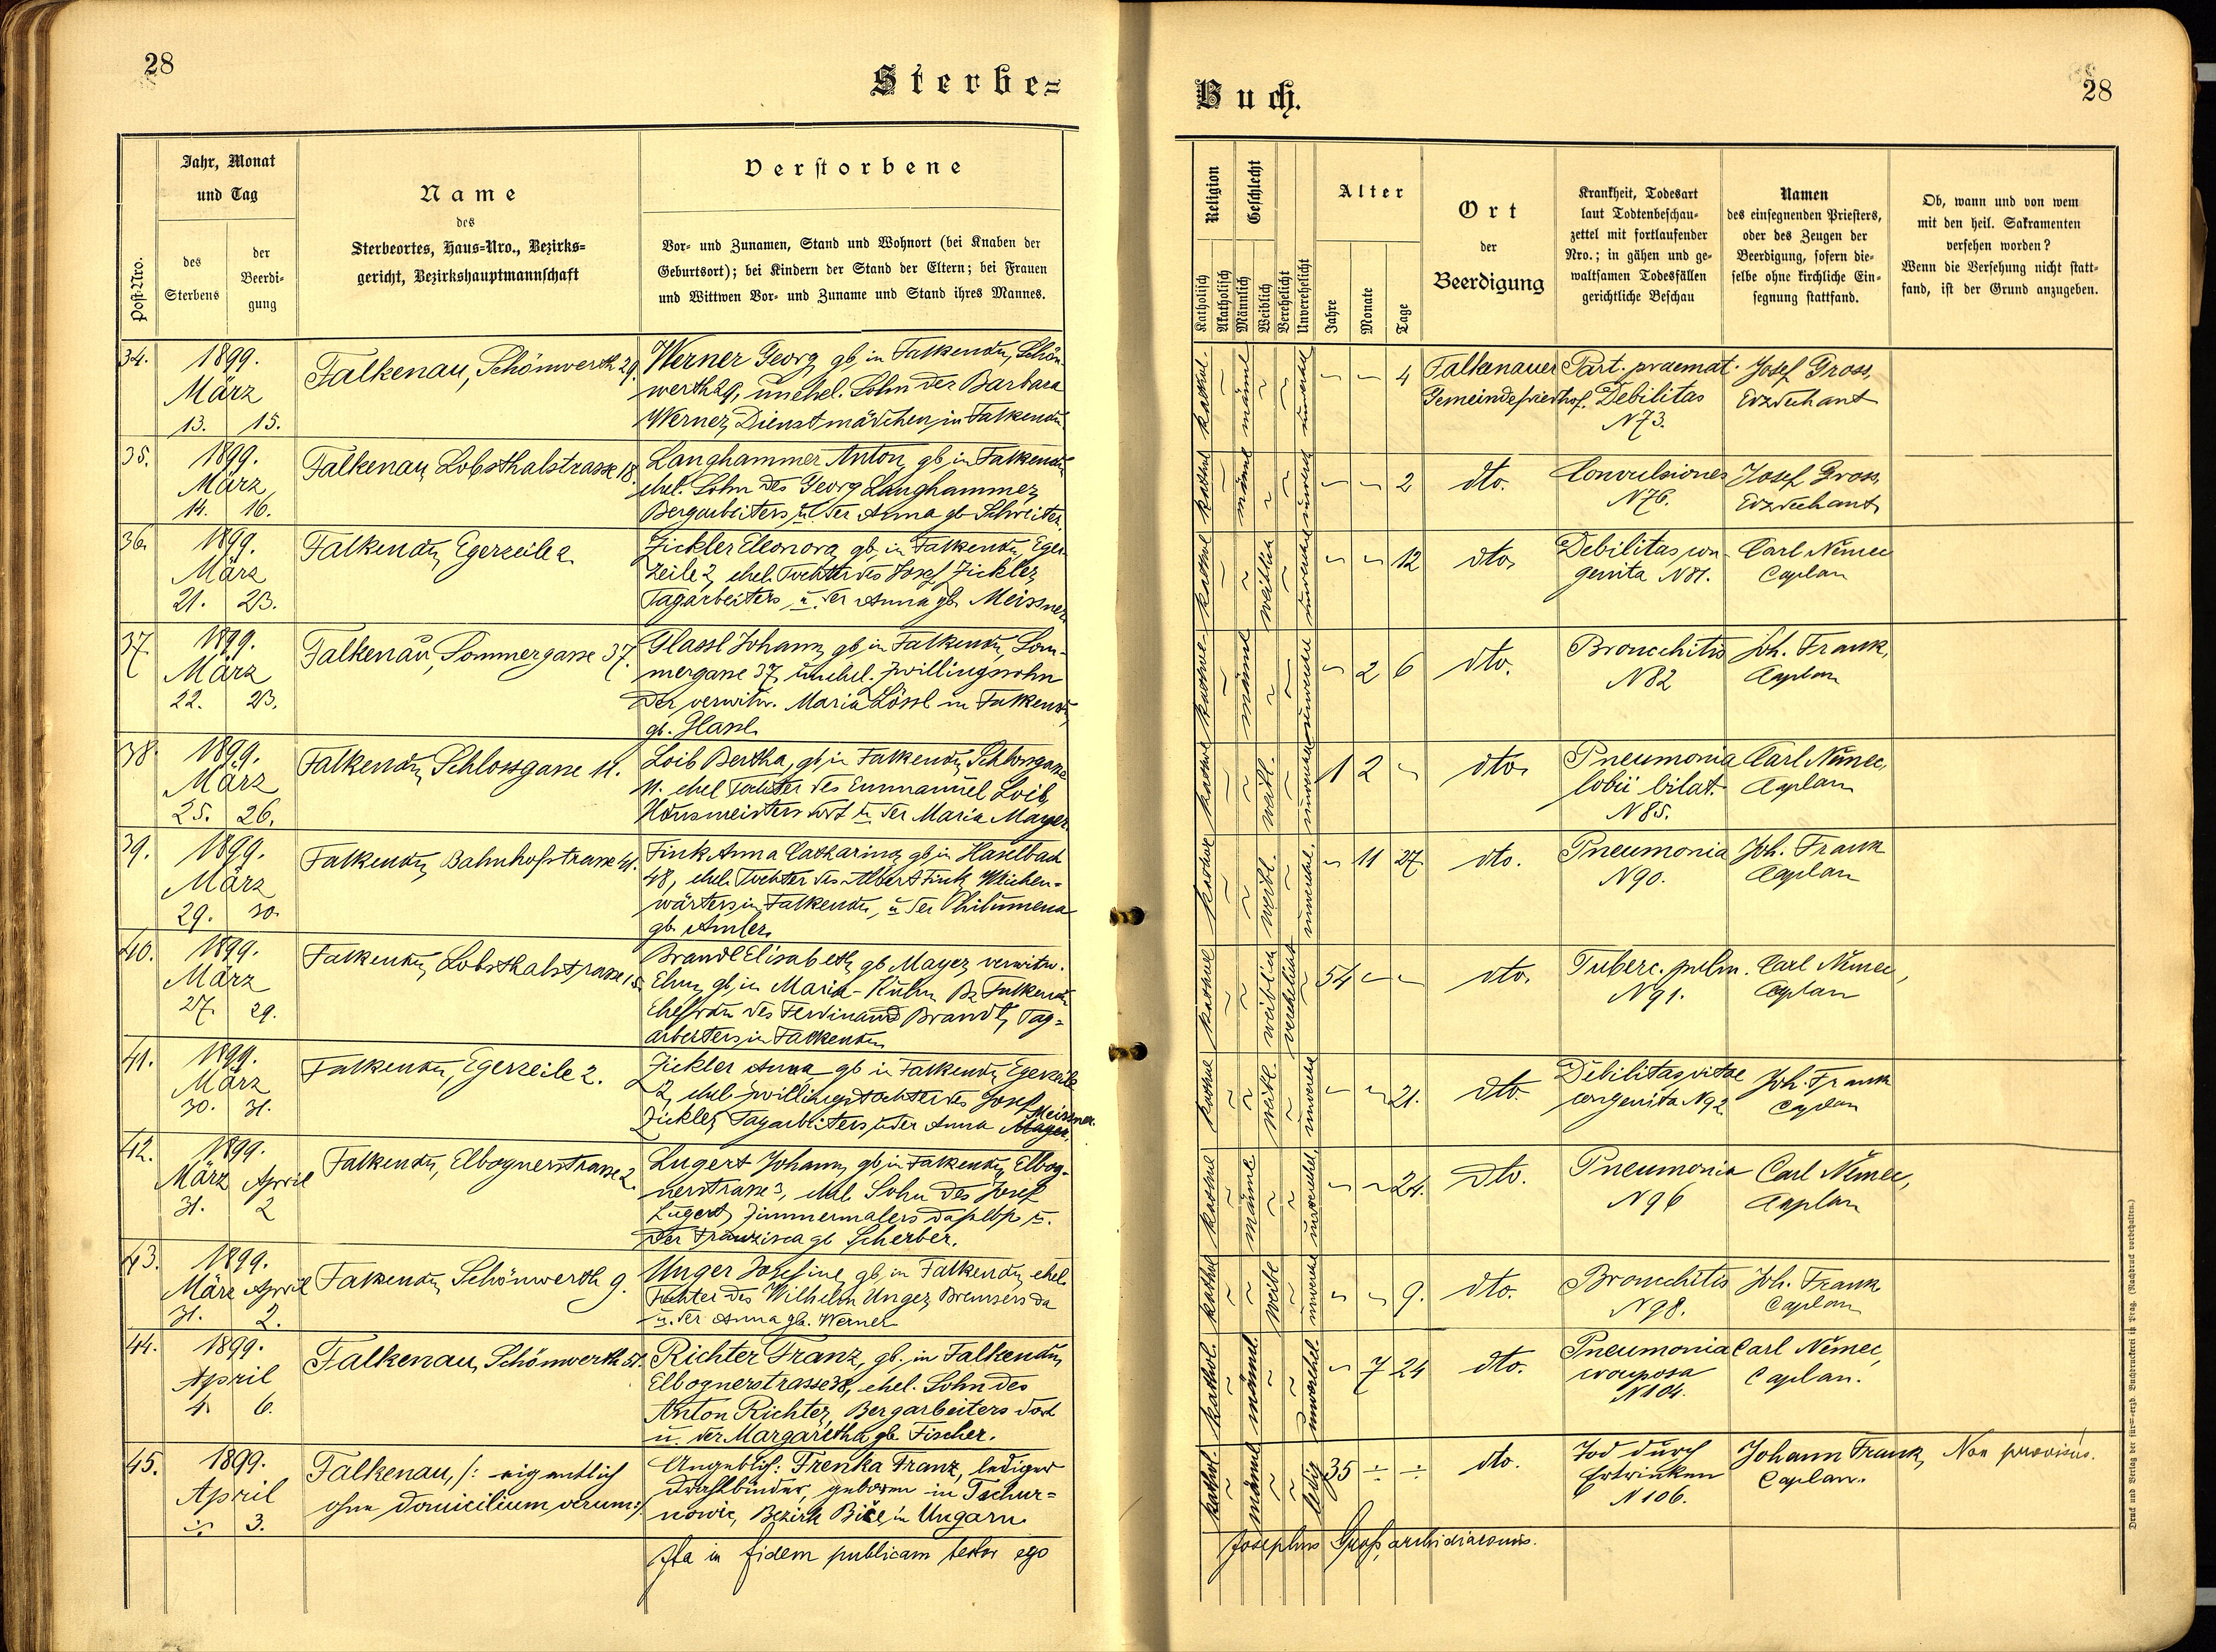 28
Sterbe=
Post-Nro.
Jahr, Monat
und Tag
des
Sterbens
der
Beerdi-
gung
Name
des
Sterbeortes, Haus-Nro., Bezirks=
gericht, Bezirkshauptmannschaft
Verstorbene
Vor- und Zunamen, Stand und Wohnort (bei Knaben der
Geburtsort); bei Kindern der Stand der Eltern; bei Frauen
und Wittwen Vor- und Zuname und Stand ihres Mannes.
34.
1899.
März
13. 15.
Falkenau, Schönwerth 29.
Werner Georg gb. in Falkenau, Schön-
werth 29, unehel. Sohn der Barbara
Werner, Dienstmädchen, in Falkenau
35.
1899.
März
14. 16.
Falkenau, Lobsthalstrasse 18.
Langhammer Anton, gb. in Falkenau
ehel. Sohn des Georg Langhammer,
Bergarbeiters, u. der Anna gb. Schreiter.
36.
1899.
März
21. 23.
Falkenau, Egerzeile 2.
Zickler Eleonora, gb. in Falkenau, Eger
Zeile 2, ehel. Tochter des Josef Zickler,
Tagarbeiters, u. der Anna gb. Meissner.
37.
1899.
März
22. 23.
Falkenau, Sommergasse 37.
Glassl Johann, gb. in Falkenau, Som-
mergasse 37, unehel. Zwillingssohn
der verwitw. Maria Lössl in Falkenau,
gb. Glassl.
38.
1899.
März
25. 26.
Falkenau, Schlossgasse 11.
Loib Bertha, gb. in Falkenau, Schlossgasse
11. ehel Tochter des Emmanuel Loib,
Hausmeisters dort u. der Maria Mayer.
39.
1899.
März
29. 30.
Falkenau, Bahnhofstrasse 41.
Fink Anna Catharina, gb. in Haselbach
48, ehel. Tochter des Albert Fink, Weichen-
wärters, in Falkenau, u. der Philumena
gb.
40.
1899.
März
27. 29.
Falkenau, Lobsthalstrasse 15.
Brandl Elisabeth, gb. Mayer, verwitw.
gb. in Maria-Kulm Bz Falkenau
Ehefrau des Ferdinand Brandl, Tag=
arbeiters, in Falkenau
41.
1899.
März
30. 31.
Falkenau, Egerzeile 2.
Zickler Anna gb. in Falkenau, Egerzeile
2, ehel. Zwillingstochter des Josef
Zickler, Tagarbeiters, u. der Anna Mayer. Meissner.
42.
1899.
März April
31. 2
Falkenau, Elbognerstrasse 2.
Lugert Johann, gb. in Falkenau, Elbog-
nerstrasse 3, ehel. Sohn des Josef
Lugert, Zimmermalers daselbst u.
der Franzisca gb. Scherber.
43.
1899.
März April
31. 2.
Falkenau, Schönwerth 9.
Unger Josefine, gb. in Falkenau, ehel.
Tochter des Wilhelm Unger, Bremsers da
u. der Anna gb. Werner
44.
1899.
April
4. 6.
Falkenau, Schönwerth 51.
Richter Franz, gb. in Falkenau,
Elbognerstrasse 38, ehel. Sohn des
Anton Richter, Bergarbeiters dort
u. der Margaretha, gb. Fischer.
45.
1899.
April
÷ 3.
Falkenau, /: eigentlich
ohne domicilium verum :/
Angeblich: Trenka Franz, lediger
Drahtbinder, geboren in Tschur=
nowic, Bezirk Biče in Ungarn.
Ita in fidem publicam testor ego
Buch.
28
Religion
Katholisch
Akatholisch
Geschlecht
Männlich
Weiblich
Verehelicht
Unverehelicht
Alter
Jahre
Monate
Tage
Ort
der
Beerdigung
Krankheit, Todesart
laut Todtenbeschau-
zettel mit fortlaufender
Nro.; in gähen und ge-
waltsamen Todesfällen
gerichtliche Beschau
Namen
des einsegnenden Priesters,
oder des Zeugen der
Beerdigung, sofern die-
selbe ohne kirchliche Ein-
segnung stattfand.
Ob, wann und von wem
mit den heil. Sakramenten
versehen worden?
Wenn die Versehung nicht statt-
fand, ist der Grund anzugeben.
kathol. ~ männl ~ ~ unverehel ~ ~ 4
Falkenauer
Gemeindefriedhof.
Part. praemat.
Debilitas
N 73.
Josef Gross,
Erzdechant
kathol ~ männl ~ ~ unvereh ~ ~ 2
dto.
Convulsiones
N 76.
Josef Gross,
Erzdechant
kathol ~ ~ weiblich ~ unverehel ~ ~ 12
dto.
Debilitas con-
genita N 81.
Carl Němec
Caplan
kathol ~ männl ~ ~ unverehel ~ 2 6
dto.
Broncchitis
N 82
Joh. Frank,
Caplan
kathol ~ ~ weibl. ~ unverehel 1 2 ~
dto.
Pneumonia
lobii bilat.
N 85.
Carl Němec,
Caplan
kathol ~ ~ weibl. ~ unverehel. ~ 11 27.
dto.
Pneumonia
N 90.
Joh. Frank
Caplan
kathol ~ ~ weiblich verehelicht ~ 54 ~ ~
dto.
Tuberc. pulm.
N 91.
Carl Němec,
Caplan
kathol ~ ~ weibl. ~ unverehe ~ ~ 21.
dto.
Debilitas vitae
congenita N 92
Joh. Frank
Caplan
kathol ~ männl. ~ ~ unverehel. ~ ~ 24.
dto.
Pneumonia
N 96
Carl Němec,
Caplan
kathol ~ ~ weibl ~ unverehe ~ ~ 9.
dto.
Broncchitis
N 98.
Joh. Frank
Caplan
kathol. ~ männl. ~ ~ unverehel. ~ 7 24
dto.
Pneumonia
crouposa
N 104.
Carl Němec,
Caplan.
kathol. ~ männl ~ ~ ledig 35 ÷ ÷
dto.
Tod durch
Ertrinken
N 106.
Johann Frank,
Caplan.
Non provisus.
Josephus Gross, archidiaconus.
Druck und Verlag der fürst-erzb. Buchdruckerei in Prag. (Nachdruck vorbehalten.)